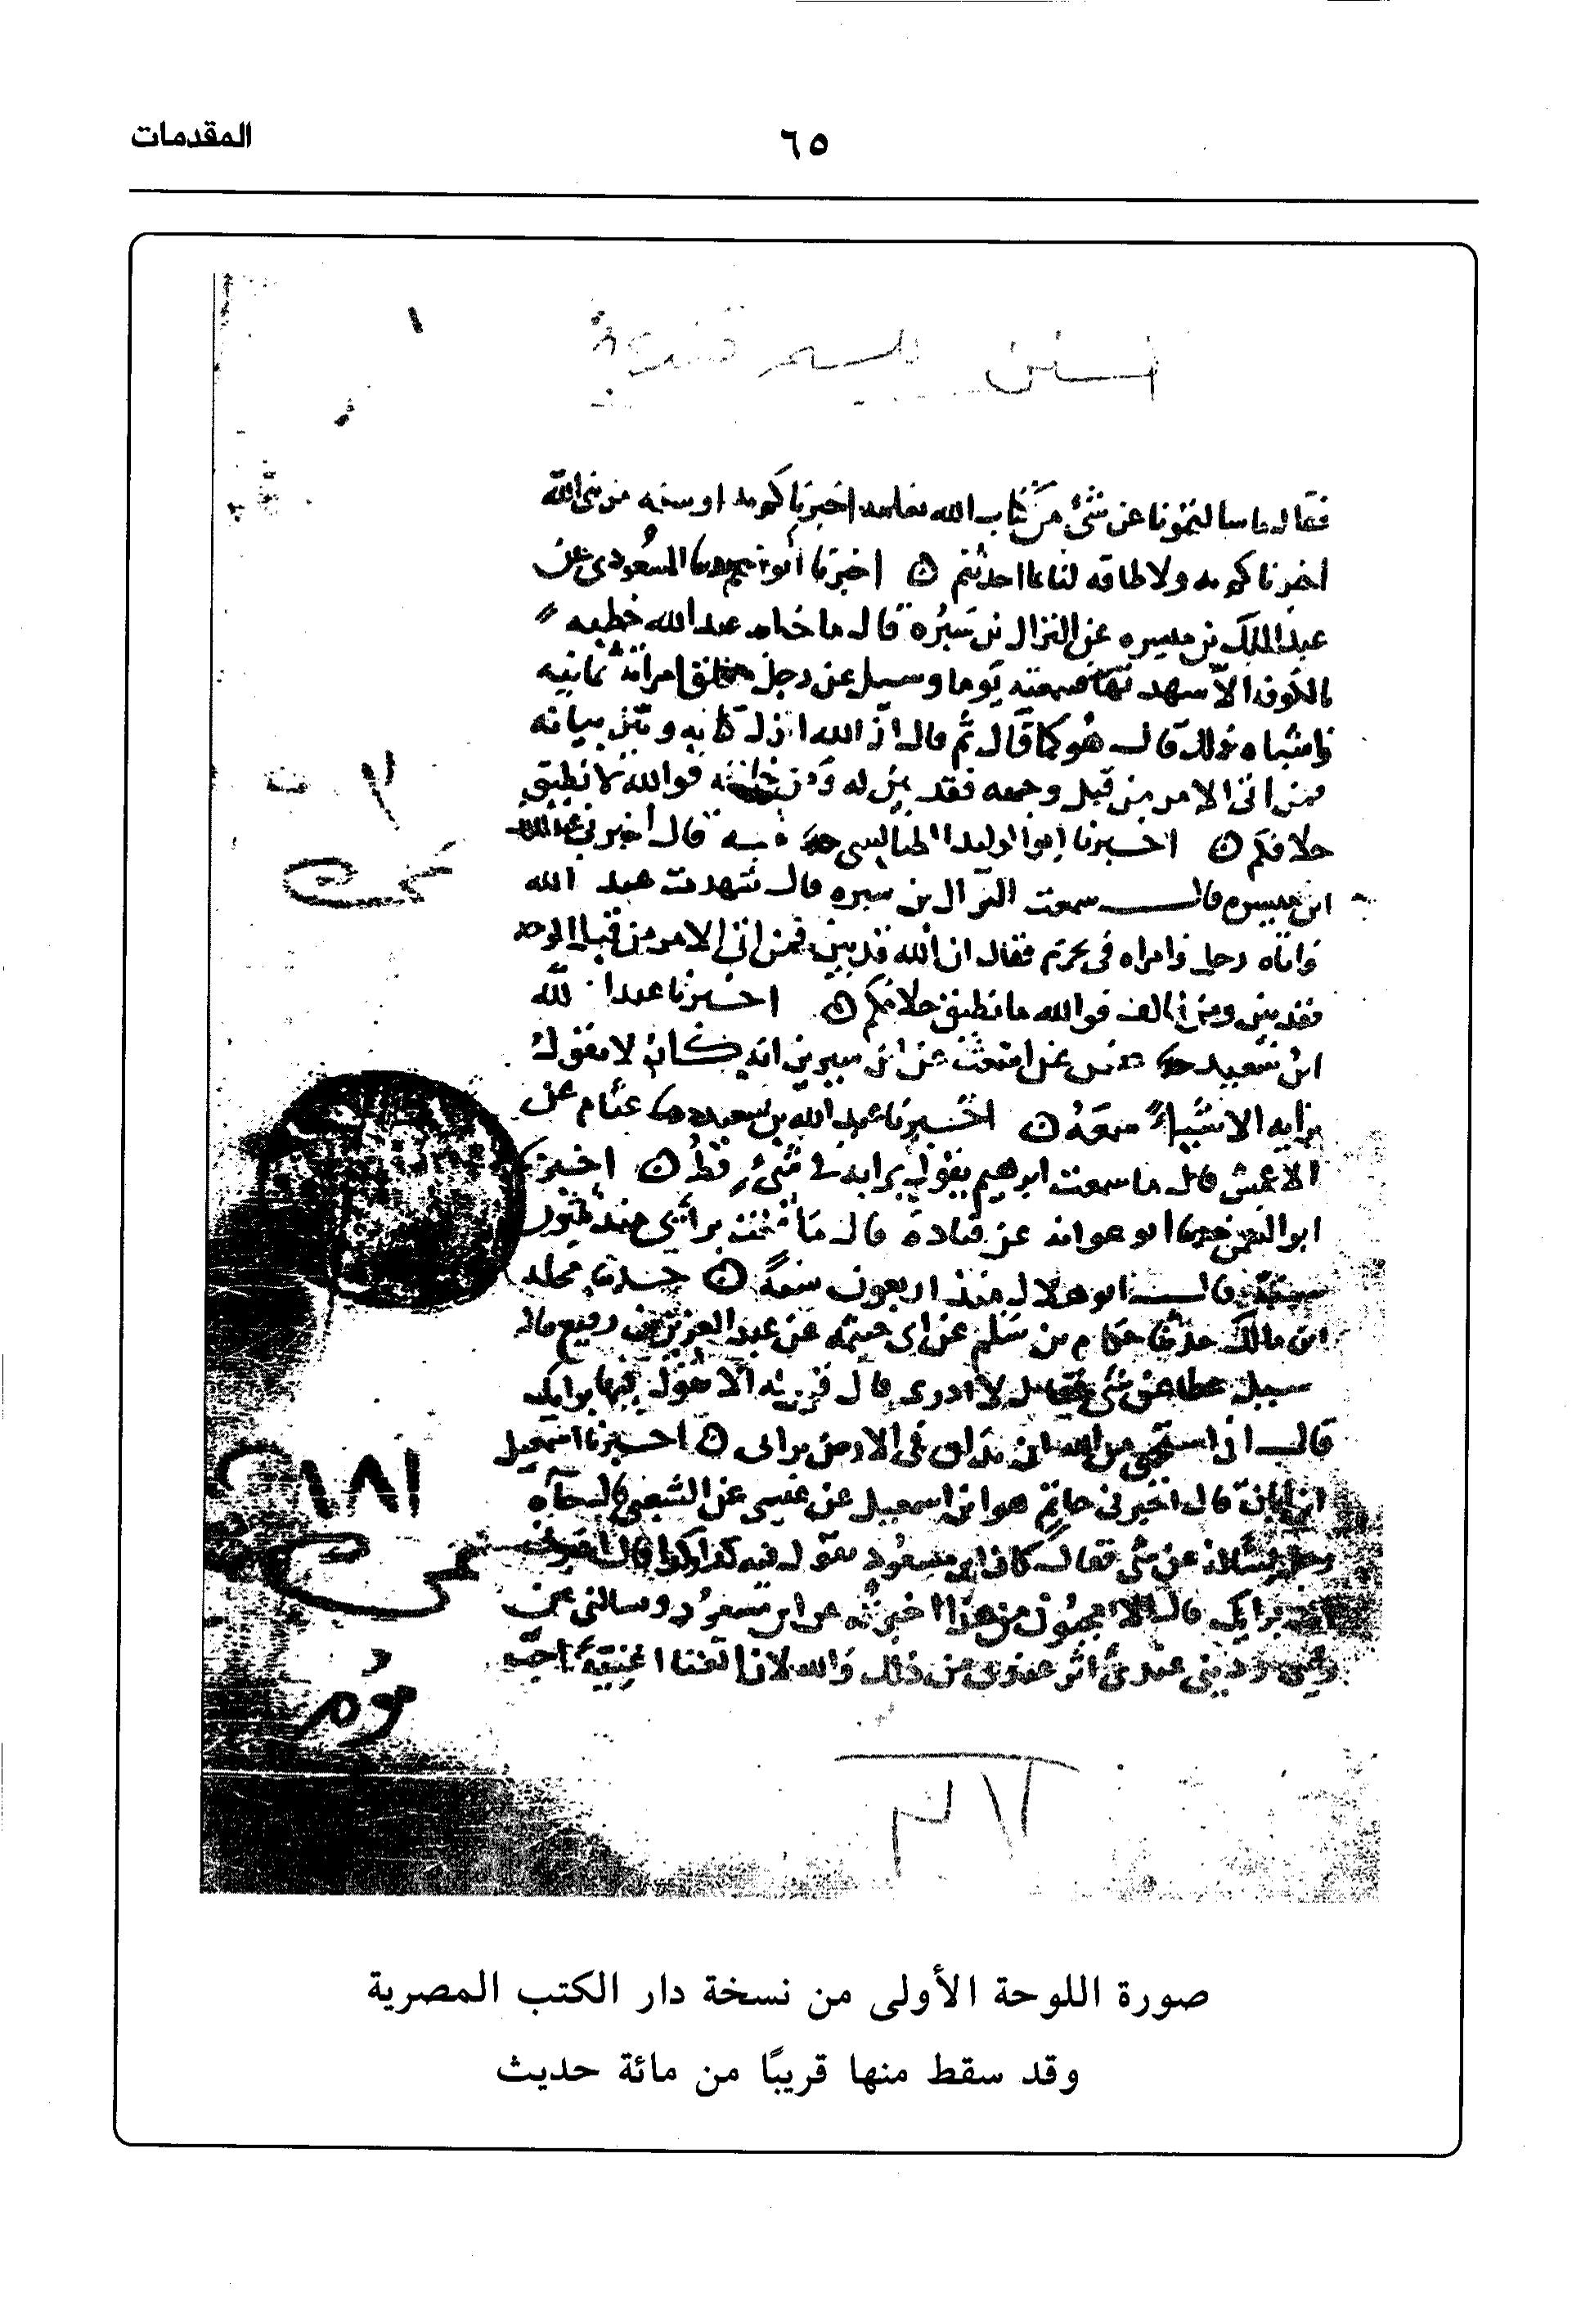 المقدمات
٦٥
فقال ما سالتمونا عن شئ من كتاب الله نعلمه اخبرناكم به او سنه من نبى الله
اخبرناكم به ولا طاقه لنا بما احدثتم ⊙ اخبرنا المسعودى عن
عبد الملك بن ميسره عن النزال بن سبره قال ما خطب عبد الله خطبه
بالكوفه الا شهدتها فسمعته يوما وسيل عن رجل يطلق امراته ثمانيه
واشباه ذلك قال هو كما قال ثم قال ان الله انزل كتابه وبين بيانه
فمن اتى الامر من قبل وجهه فقد بين له ومن خالف فوالله ما نطيق
خلافكم ⊙ اخبرنا ابو الوليد الطيالسى شعبه قال اخبرنى عبد الملك
ابن ميسره قال سمعت النزال بن سبره قال شهدت عبد الله
واتاه رجل وامراه فى تحريم فقال ان الله قد بين فمن اتى الامر من قبل وجهه
فقد بين ومن خالف فوالله ما نطيق خلافكم ⊙ اخبرنا عبد الله
ابن سعيد عن اشعث عن ابن سيرين انه كان لا يقول
برايه الا شيا سمعه ⊙ اخبرنا عبد الله بن سعيد عثام عن
الاعمش قال ما سمعت ابرهيم يقول برايه فى شئ قط ⊙ اخبرنا
ابو النعمن ابو عوانه عن قتاده قال ما قلت براى منذ ثلثون
سنه قال ابو هلال منذ اربعون سنه ⊙ مخلد
ابن مالك حدثنا حكام بن سلم عن ابى خيثمه عن عبد العزيز بن رفيع قال
سيل عطا عن شئ قال لا ادرى قال قيل له الا تقول فيها برايك
قال انى استحيى من الله ان يدان فى الارض برايى ⊙ اخبرنا اسمعيل
ابن ابان قال اخبرنى حاتم هو ابن اسمعيل عن عيسى عن الشعبى قال جاه
رجل يساله عن شئ فقال كان ابن مسعود يقول فيه كذا وكذا قال اخبرنى
انت برايك قال الا تعجبون من هذا اخبرته عن ابن مسعود وسالنى عن
رايى ودينى عندى اثر عندى من ذلك والله لان اتغنا اغنيه احب
١٨١
صورة اللوحة الأولى من نسخة دار الكتب المصرية
وقد سقط منها قريبًا من مائة حديث